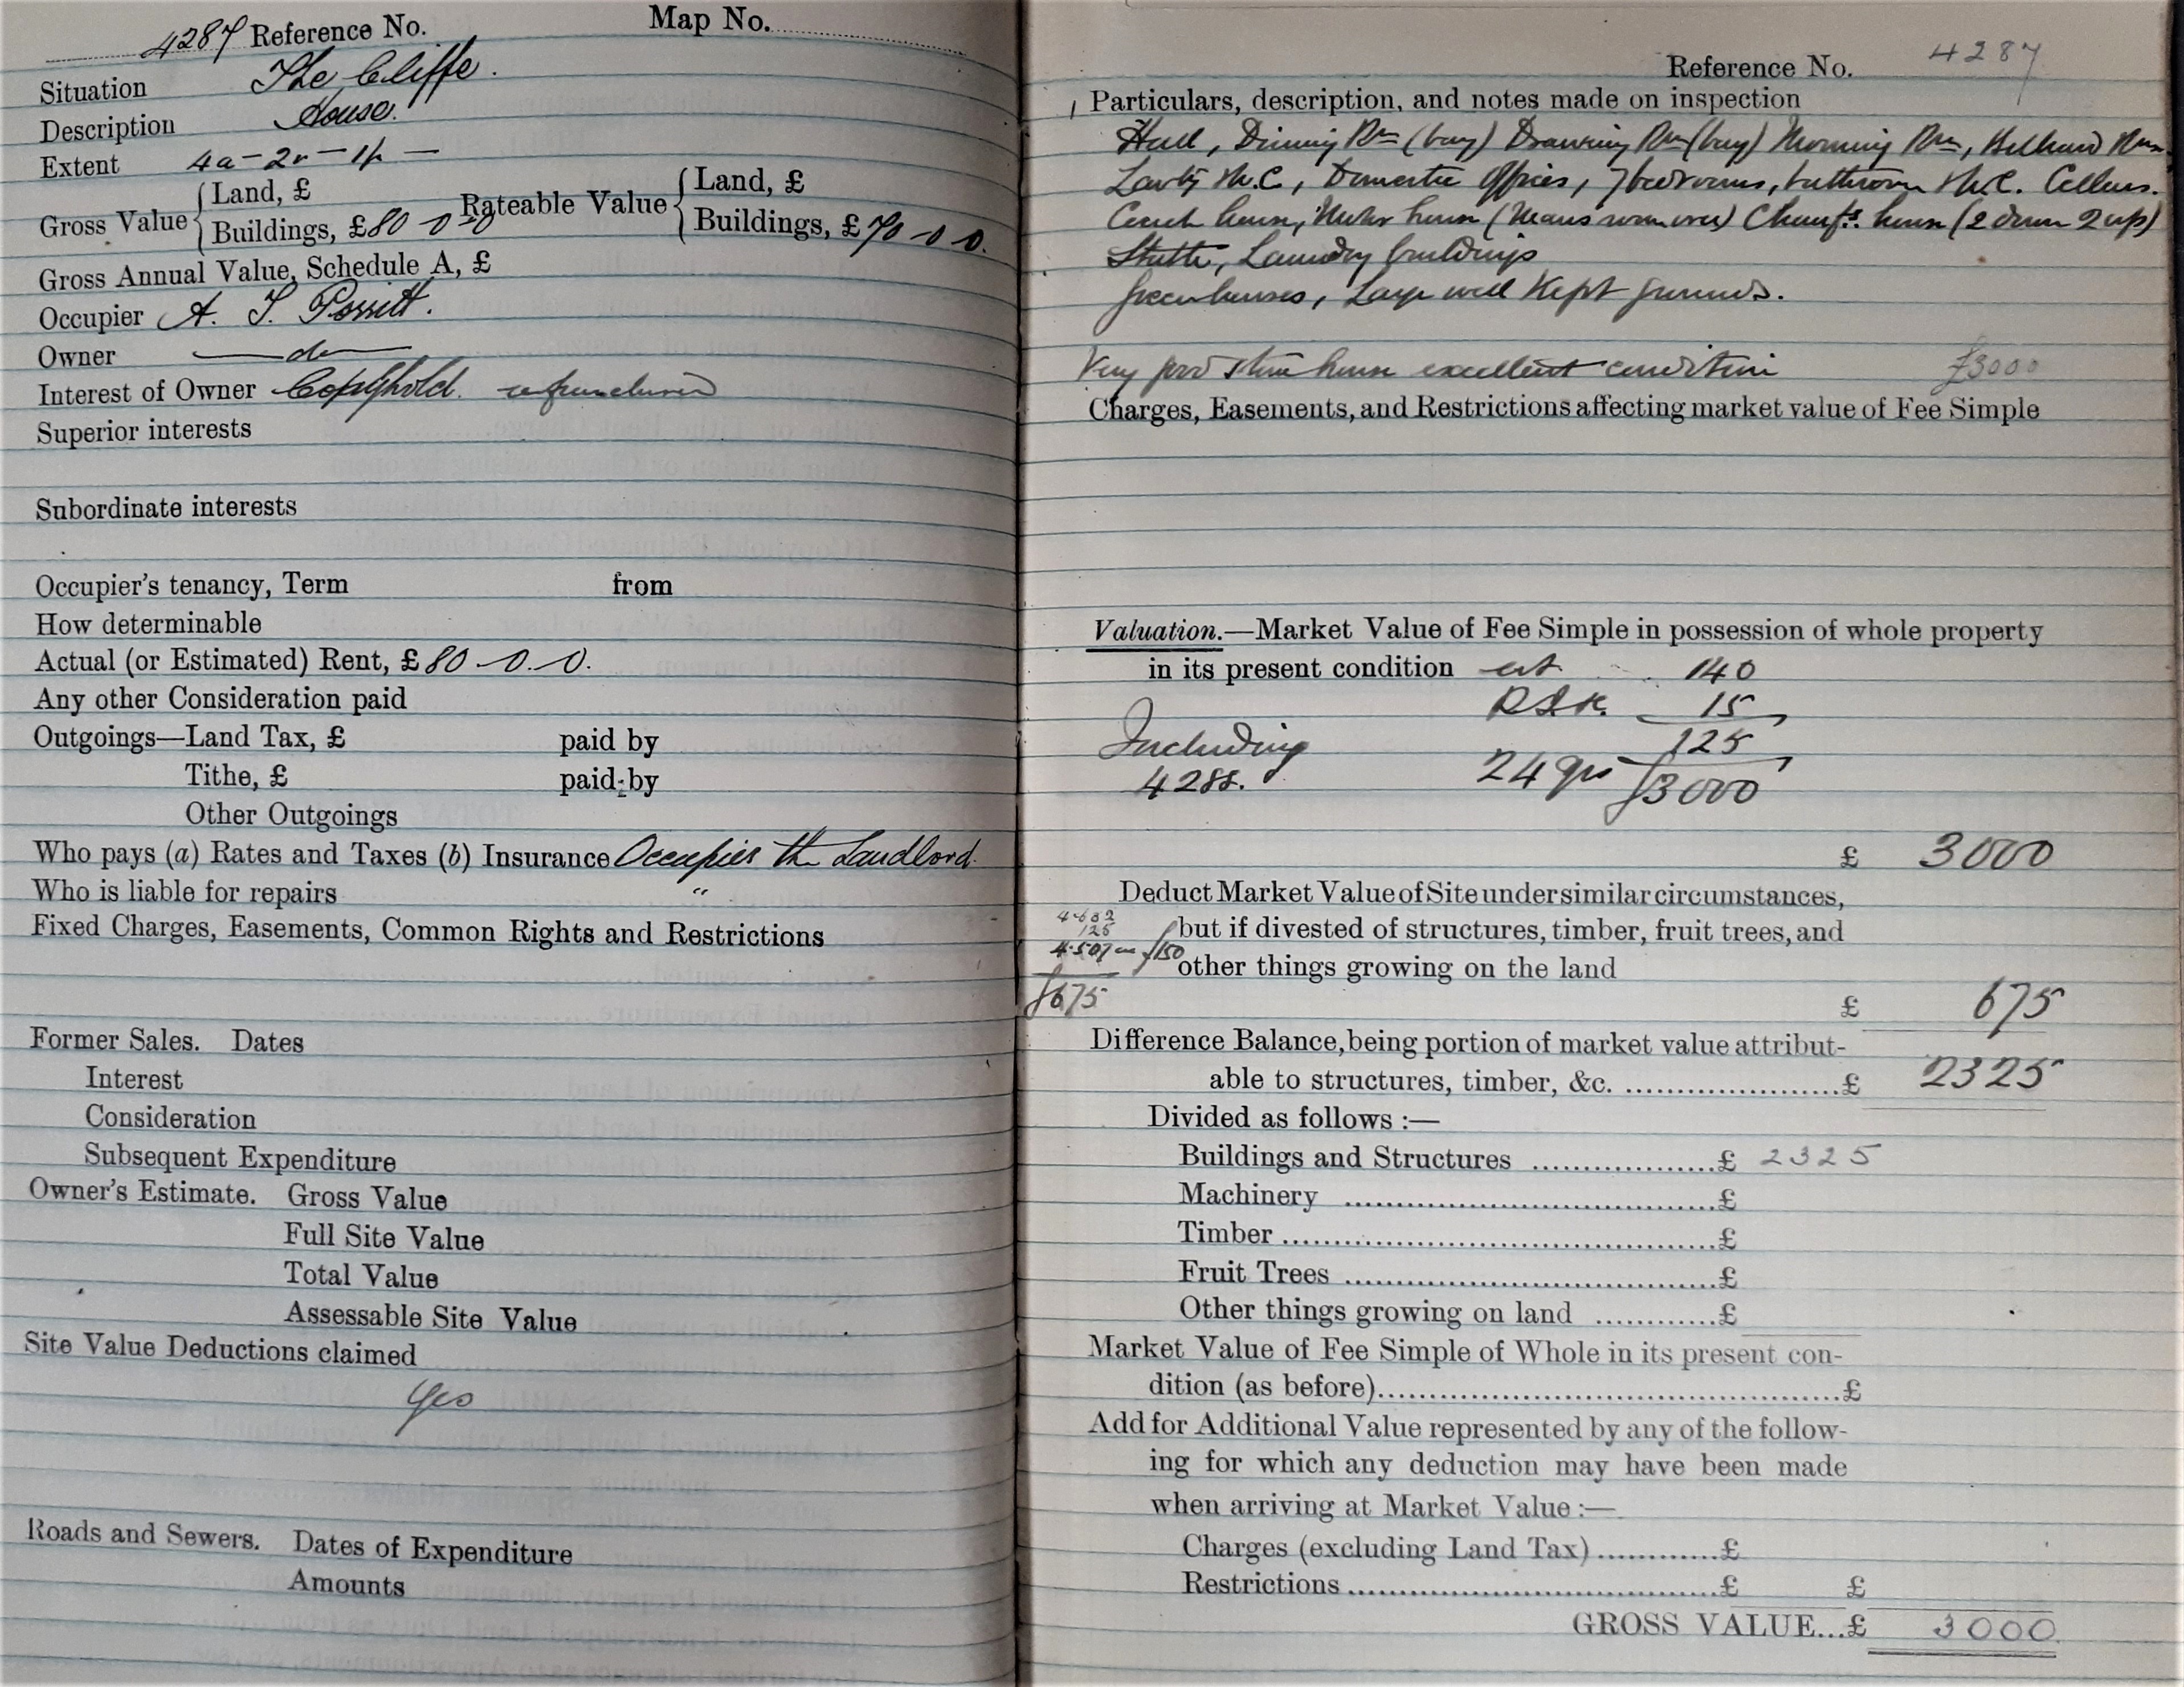 4287 Reference No. Map No.
Situation The Cliffe.
Description House.
Extent 4a-2r-1p-
Gross Value { Land, £ Rateable Value { Land, £
Buildings, £80-0-0 Buildings, £70-0-0.
Gross Annual Value, Schedule A, £
Occupier A. T. Porritt.
Owner —do—
Interest of Owner Copyhold. enfranchised
Superior interests
Subordinate interests
Occupier's tenancy, Term from
How determinable
Actual (or Estimated) Rent, £80-0-0.
Any other Consideration paid
Outgoings—Land Tax, £ paid by
Tithe, £ paid by
Other Outgoings
Who pays (a) Rates and Taxes (b) Insurance Occupier the Landlord
Who is liable for repairs "
Fixed Charges, Easements, Common Rights and Restrictions
Former Sales. Dates
Interest
Consideration
Subsequent Expenditure
Owner's Estimate. Gross Value
Full Site Value
Total Value
Assessable Site Value
Site Value Deductions claimed
Yes
Roads and Sewers. Dates of Expenditure
Amounts
Reference No. 4287
Particulars, description, and notes made on inspection
Hall, Dining Rm (bay) Drawing Rm (bay) Morning Rm, Billiard Rm
Lavty W.C, Domestic Offices, 7 bedrooms, bathroom & W.C. Cellars.
Coach house, Motor house (Mans room over) Chauf's. house (2 down 2 up)
Stable, Laundry buildings
Greenhouses, Large well Kept grounds.
Very good stone house excellent condition £3000
Charges, Easements, and Restrictions affecting market value of Fee Simple
Valuation.—Market Value of Fee Simple in possession of whole property
in its present condition est 140
15
Including 125
4288. 24 yrs £3000
£ 3000
Deduct Market Value of Site under similar circumstances,
4.632
125
but if divested of structures, timber, fruit trees, and
4.507 £150
other things growing on the land
£675
£ 675
Difference Balance, being portion of market value attribut-
able to structures, timber, &c. ....................£ 2325
Divided as follows :—
Buildings and Structures ..................£ 2325
Machinery ..................£
Timber ..................£
Fruit Trees ..................£
Other things growing on land ............£
Market Value of Fee Simple of Whole in its present con-
dition (as before)..................£
Add for Additional Value represented by any of the follow-
ing for which any deduction may have been made
when arriving at Market Value :—
Charges (excluding Land Tax)............£
Restrictions..................£ £
GROSS VALUE...£ 3000